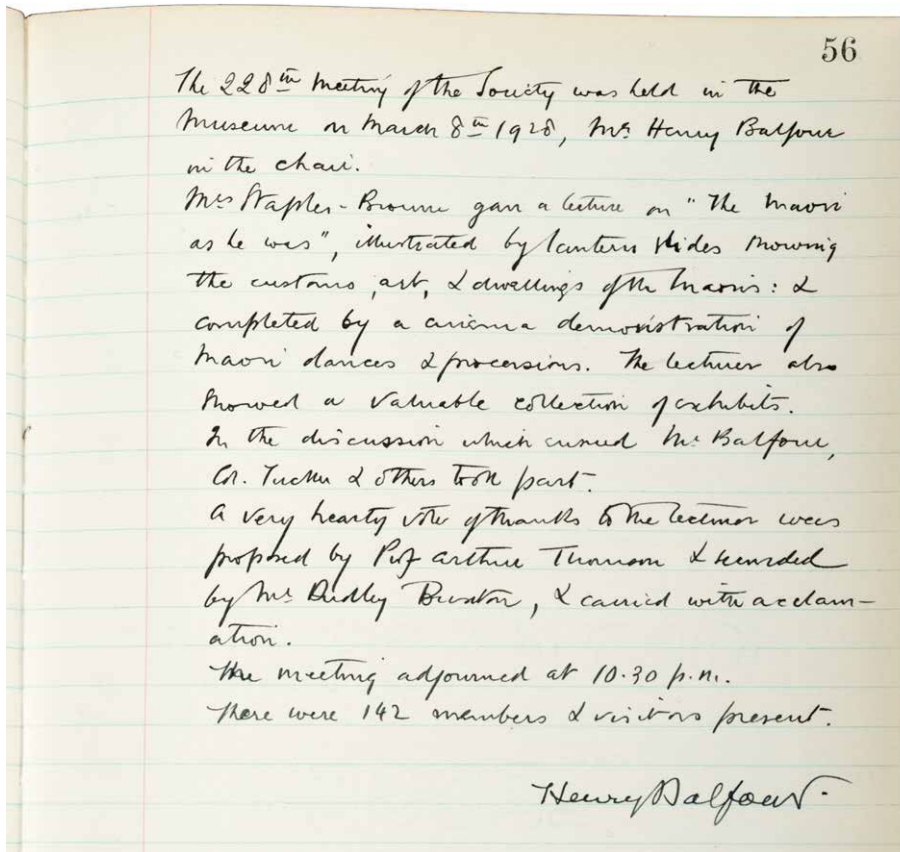 56
The 228th Meeting of the Society was held in the
Museum on March 8th 1928, Mr. Henry Balfour
in the chair.
Mrs Staples-Browne gave a lecture on "The Maori
as he was", illustrated by lantern slides showing
the customs, art, & dwellings of the Maoris: &
completed by a cinema demonstration of
Maori dances & processions. The lecturer also
showed a valuable collection of exhibits.
In the discussion which ensued Mr. Balfour,
Col. Tucker & others took part.
A very hearty vote of thanks to the lecturer was
proposed by Prof Arthur Thomson & seconded
by Mr. Dudley Buxton, & carried with acclam-
ation.
The meeting adjourned at 10.30 p.m.
There were 142 members & visitors present.
Henry Balfour.